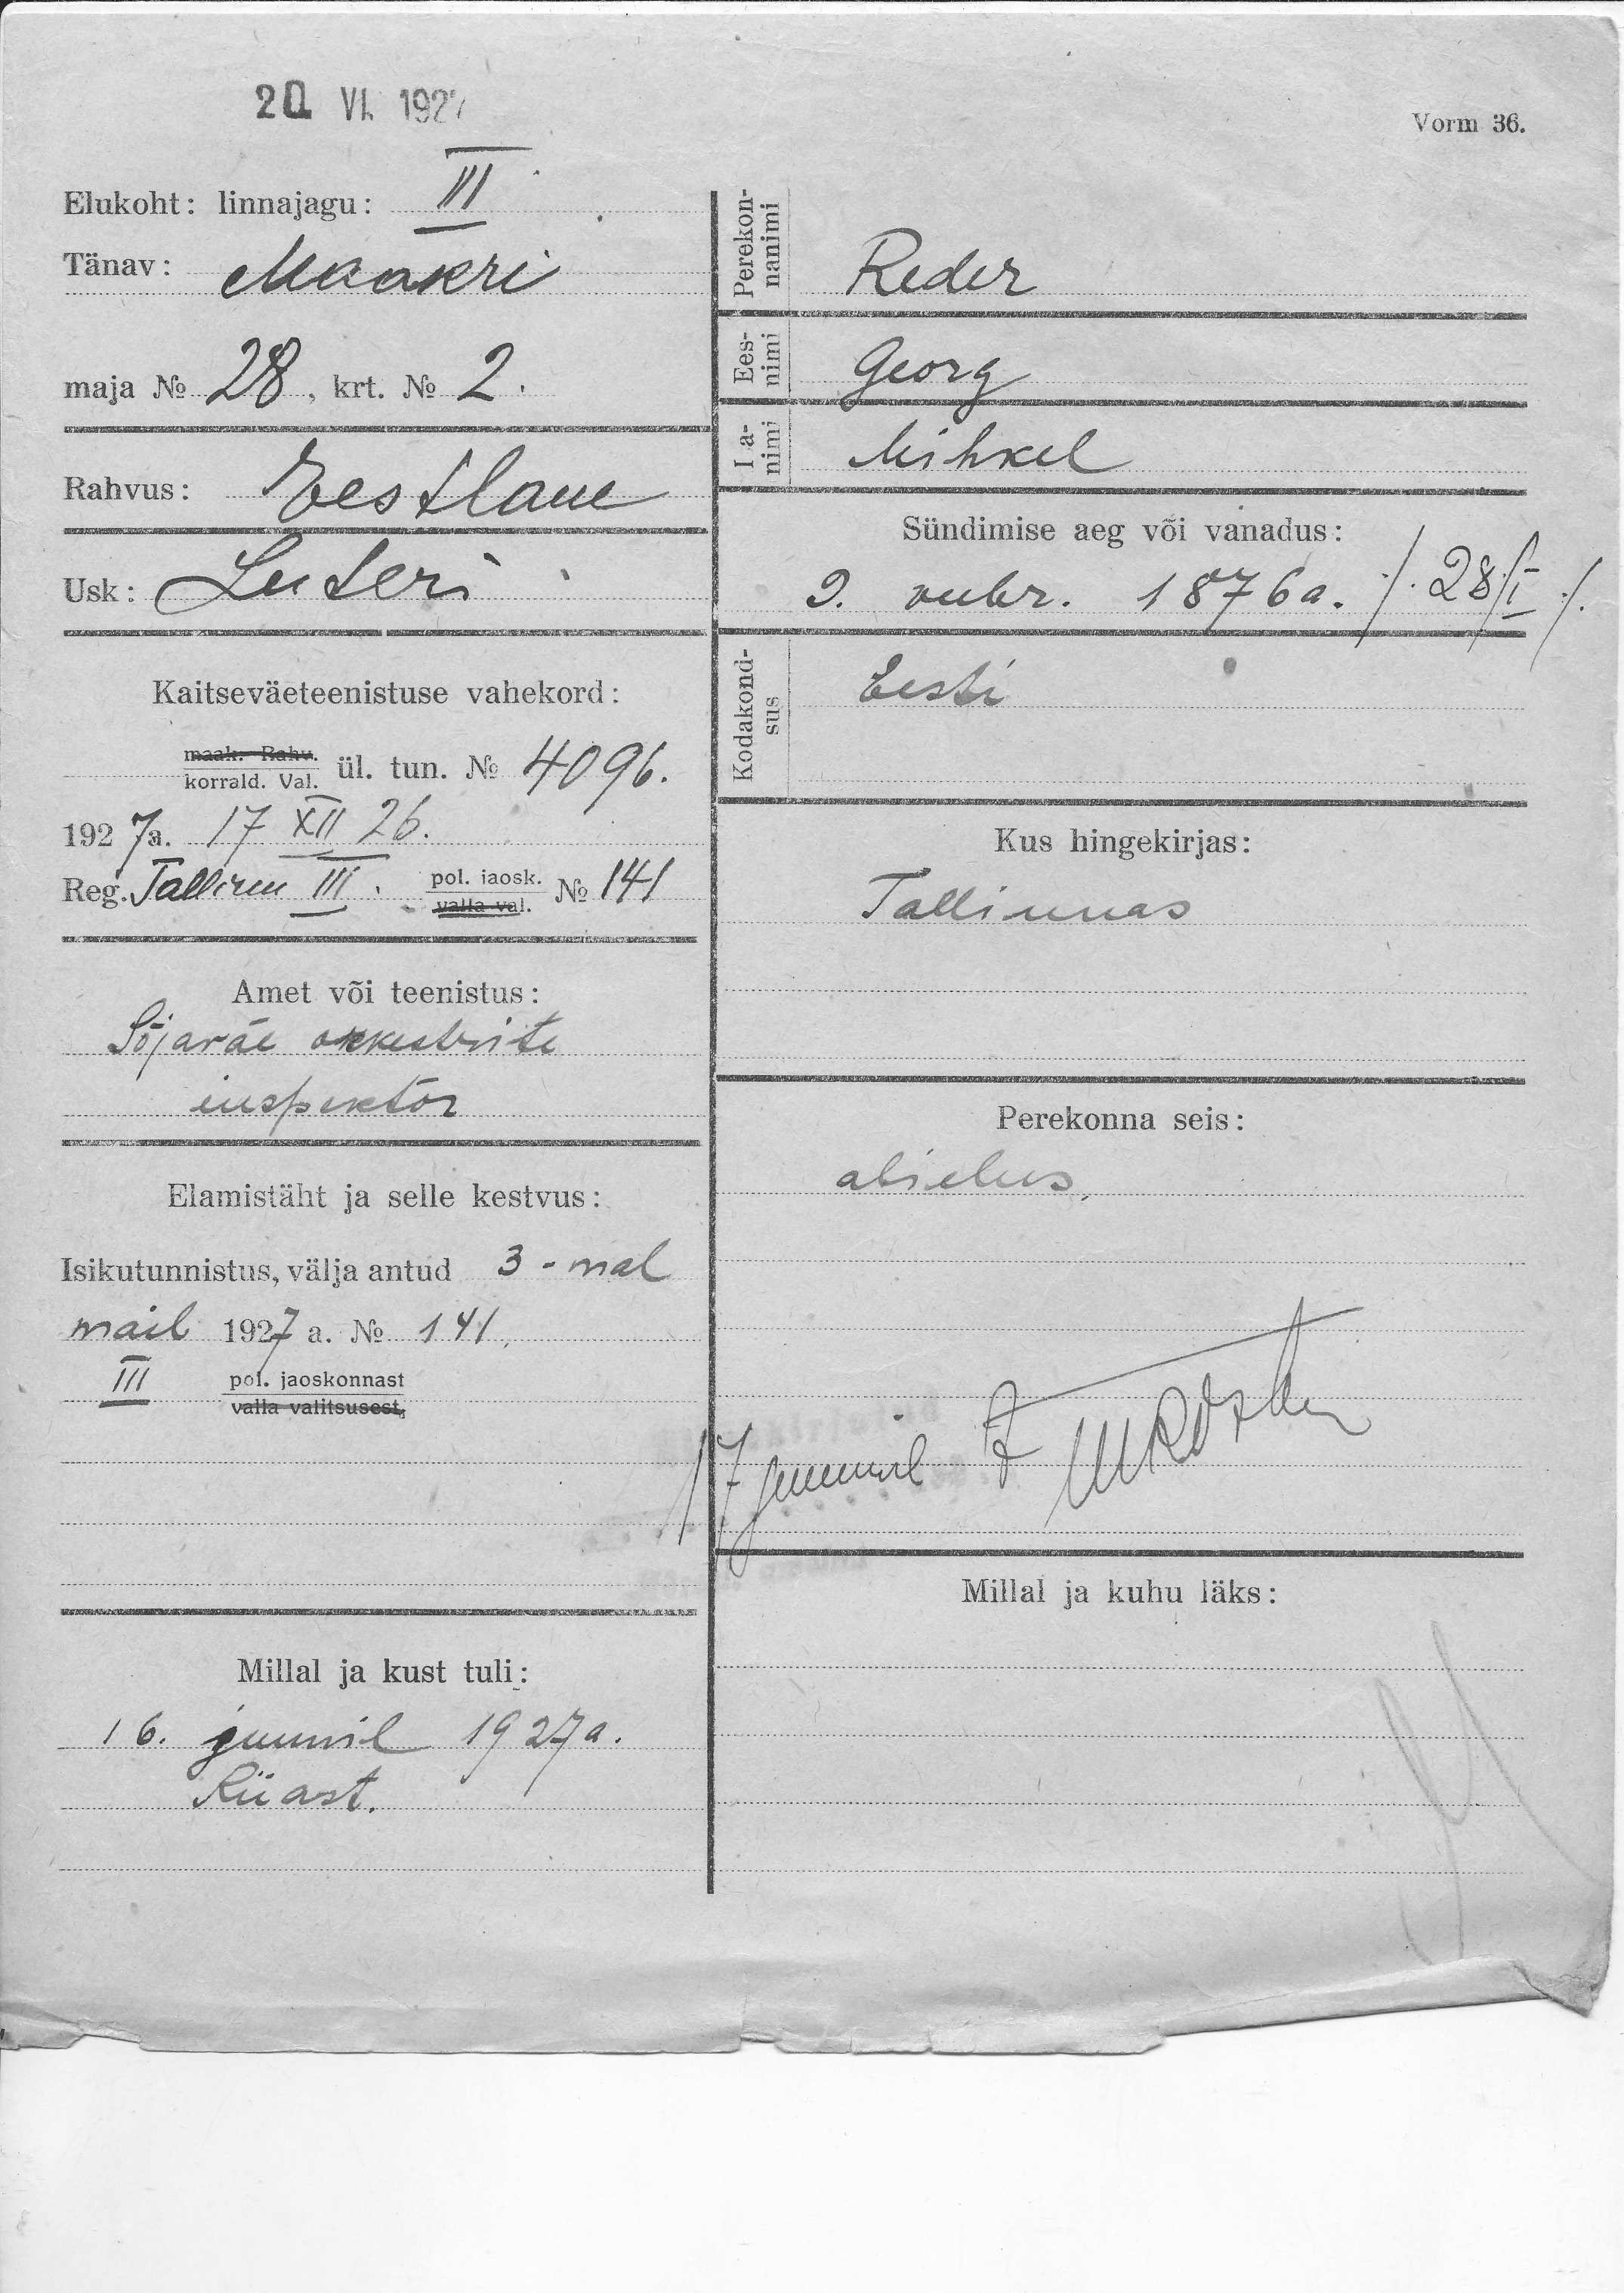 20 VI. 1927
Vorm 36.
Elukoht: linnajagu: III
Tänav: Maakri
maja № 28, krt. № 2.
Rahvus: Eestlane
Usk: Luteri
Kaitseväeteenistuse vahekord:
maak. Rahv.
korrald. Val. ül. tun. № 4096.
1927a. 17 XII 26.
Reg. Tallinn III. pol. jaosk. № 141
valla val.
Amet või teenistus:
Sõjaväe orkestrite
inspektor
Elamistäht ja selle kestvus:
Isikutunnistus, välja antud 3-mal
mail 1927 a. № 141.
III pol. jaoskonnast
valla valitsusest,
Millal ja kust tuli:
16. juunil 1927a.
Riiast.
Perekon-
nanimi
Reder
Ees-
nimi
Georg
Isa-
nimi
Mihkel
Sündimise aeg või vanadus:
9. 1876a. /. 28/I ./.
Kodakond-
sus
Eesti
Kus hingekirjas:
Tallinnas
Perekonna seis:
abielus.
17 juunil
Millal ja kuhu läks: